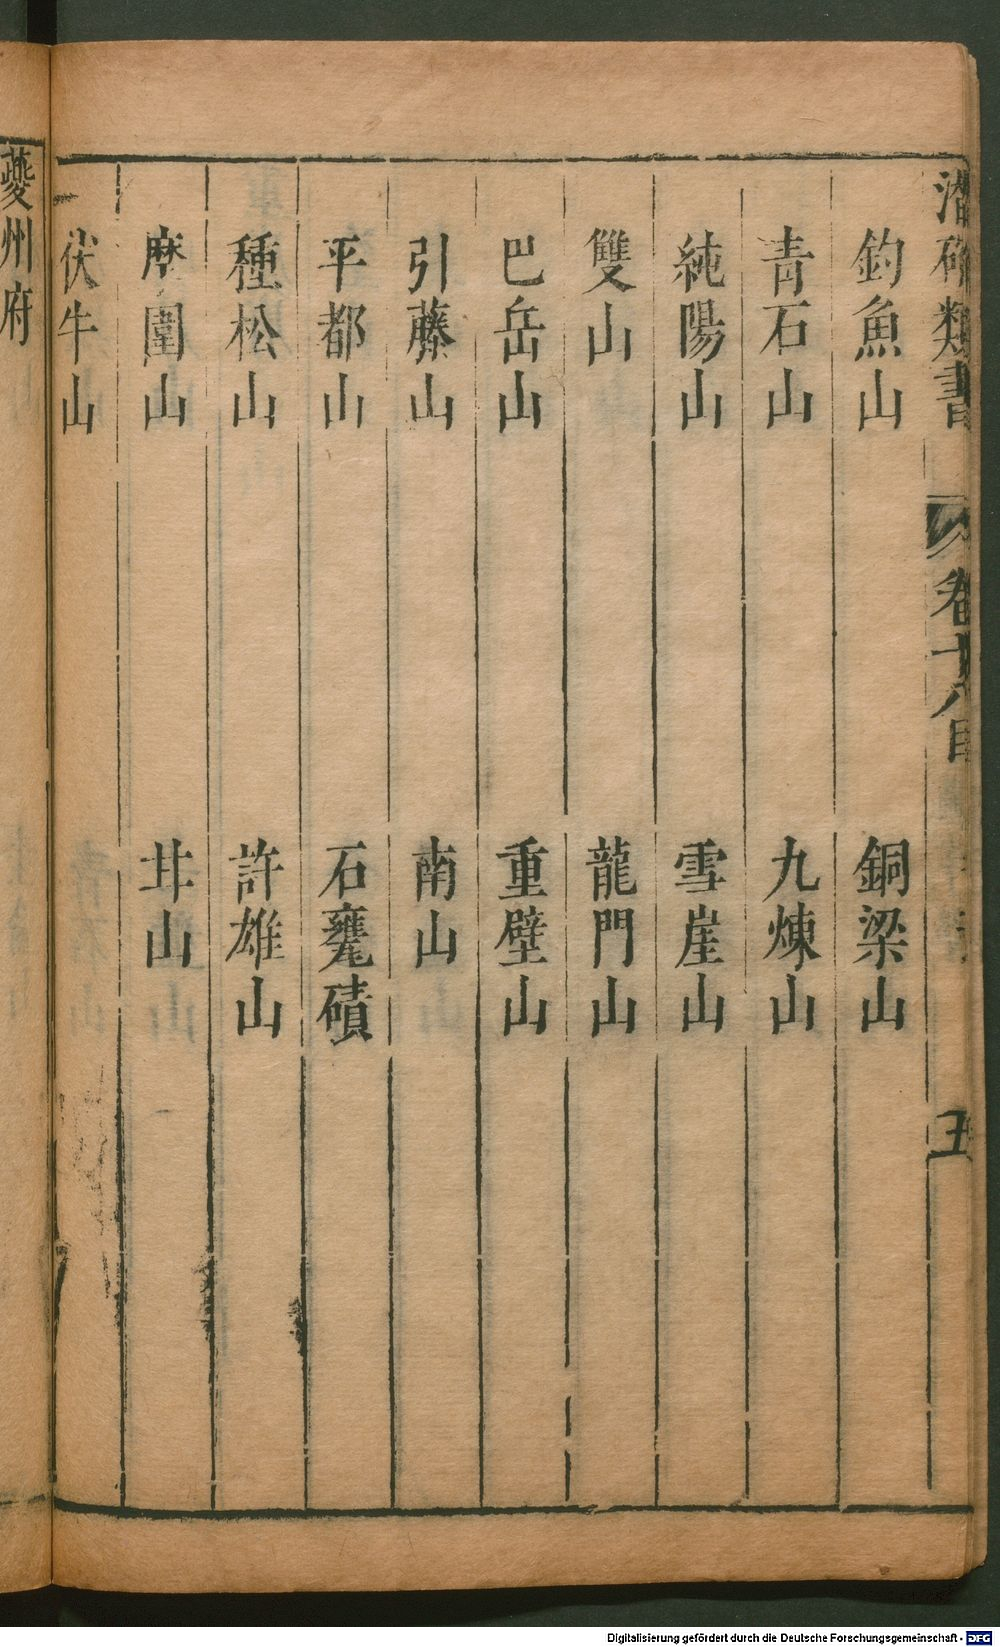 潛確類書
卷十八目
五
釣魚山 銅梁山
青石山 九煉山
純陽山 雪崖山
雙山 龍門山
巴岳山 重壁山
引藤山 南山
平都山 石甕磧
種松山 許雄山
摩圍山 丰山
伏牛山
夔州府
Digitalisierung gefördert durch die Deutsche Forschungsgemeinschaft - DFG